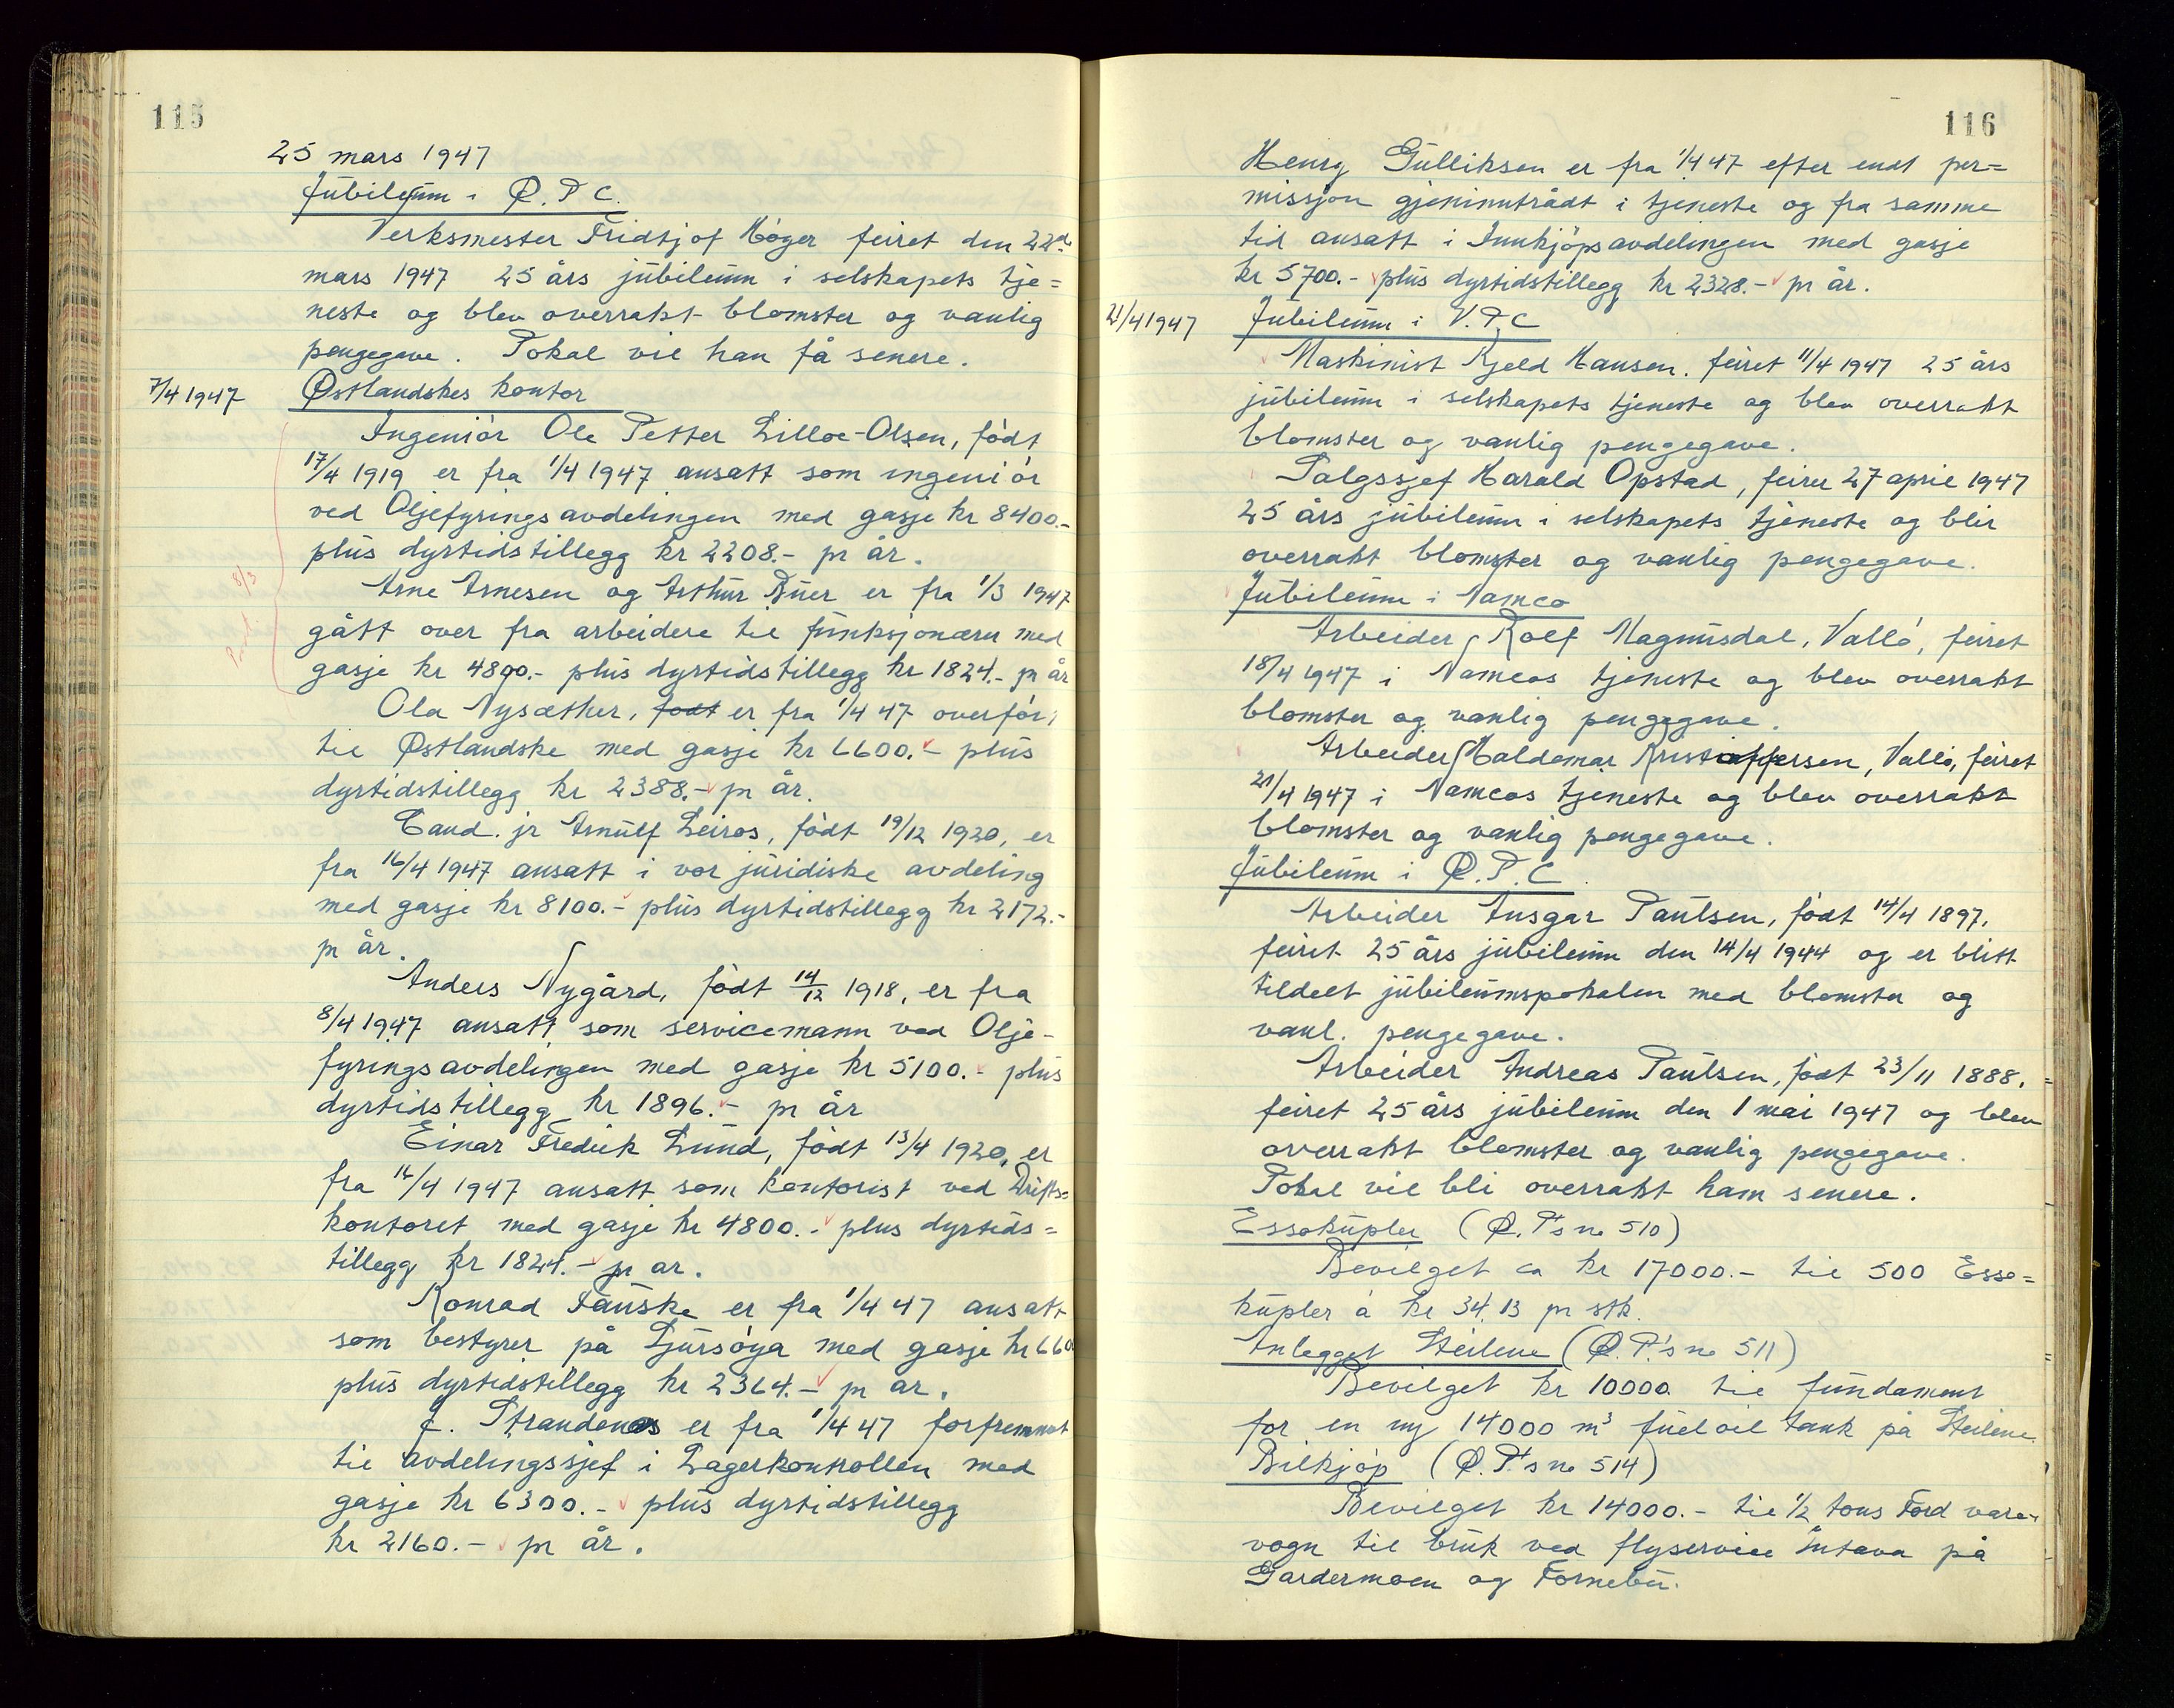 115
25 mars 1947
Jubileum i Ø. P. C.
Verksmester Fridtjof Høyer feiret den 22de
mars 1947 25 års jubileum i selskapets tje=
neste og blev overrakt blomster og vanlig
pengegave. Pokal vil han få senere.
7/4 1947 Østlandskes kontor
Ingeniør Ole Petter Lilloe-Olsen, født
17/4 1919 er fra 1/4 1947 ansatt som ingeniør
ved Oljefyringsavdelingen med gasje kr 8400.-
plus dyrtidstillegg kr 2208.- pr år.
Arne Arnesen og Arthur Buer er fra 1/3 1947
gått over fra arbeidere til funksjonærer med
gasje kr 4800.- plus dyrtidstillegg kr 1824.- pr år
Ola Nysæther, født er fra 1/4 47 overført
til Østlandske med gasje kr 6600.- plus
dyrtidstillegg kr 2388.- pr år.
Cand. jr Arnulf Leiros, født 19/12 1920, er
fra 16/4 1947 ansatt i vor juridiske avdeling
med gasje kr 8100.- plus dyrtidstillegg kr 2172.-
pr år.
Anders Nygård, født 14/12 1918, er fra
8/4 1947 ansatt som servicemann ved Olje-
fyringsavdelingen med gasje kr 5100.- plus
dyrtidstillegg kr 1896.- pr år
Einar Fredrik Lund, født 13/4 1920, er
fra 16/4 1947 ansatt som kontorist ved Drifts=
kontoret med gasje kr 4800.- plus dyrtids=
tillegg kr 1824.- pr ar.
Konrad Fauske er fra 1/4 47 ansatt
som bestyrer på Sjursøya med gasje kr 660
plus dyrtidstillegg kr 2364.- pr ar.
J. Strandenæs er fra 1/4 47 forfremmet
til avdelingssjef i Lagerkontrollen med
gasje kr 6300.- plus dyrtidstillegg
kr 2160.- pr år.
116
Henry Gulliksen er fra 1/4 47 efter endt per=
missjon gjeninntrådt i tjeneste og fra samme
tid ansatt i Innkjøpsavdelingen med gasje
kr 5700.- plus dyrtidstillegg kr 2328.- pr år.
21/4 1947 Jubileum i V. P. C
Maskinist Kjeld Hansen. feiret 11/4 1947 25 års
jubileum i selskapets tjeneste og blev overrakt
blomster og vanlig pengegave.
Salgssjef Harald Opstad, feirer 27 april 1947
25 års jubileum i selskapets tjeneste og blir
overrakt blomster og vanlig pengegave.
Jubileum i Namco
Arbeider Rolf Magnusdal, Valló, feiret
18/4 1947 i Namcos tjeneste og blev overrakt
blomster og vanlig pengegave.
Arbeider Haldemar Kristoffersen, Valló, feiret
21/4 1947 i Namcos tjeneste og blev overrakt
blomster og vanlig pengegave.
Jubileum i Ø. P. C
Arbeider Ansgar Paulsen, født 14/4 1897,
feiret 25 års jubileum den 14/4 1944 og er blitt
tildelt jubileumspokalen med blomster og
vanl. pengegave.
Arbeider Andreas Paulsen, født 23/11 1888,
feiret 25 års jubileum den 1 mai 1947 og blev
overrakt blomster og vanlig pengegave.
Pokal vil bli overrakt ham senere.
Essokupler (Ø. P's no 510)
Bevilget ca kr 17000.- til 500 Esso=
kupler á kr 34.13 pr stk.
Anlegget Steilene (Ø. P.'s no 511)
Bevilget kr 10000 til fundament
for en ny 14000 m³ fueloil tank på Steilene
Bilkjøp (Ø. P.'s no 514)
Bevilget kr 14000.- til 1/2 tons Ford vare-
vogn til bruk ved flyservice Intava på
Gardermoen og Fornebu.